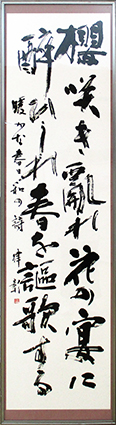 櫻咲き亂れ花の宴に
醉ひしれ春を謳歌する
暖かな春日和の詩